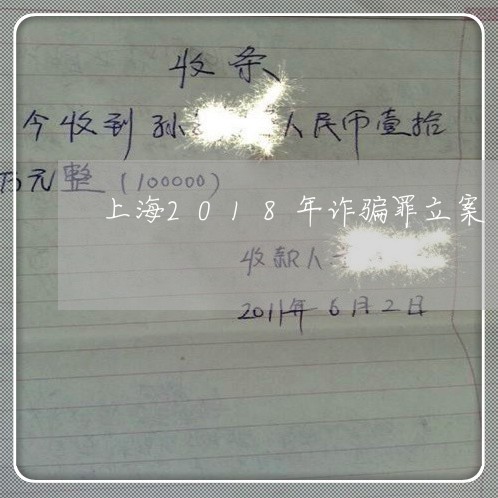 收条
今收到孙 人民币壹拾
万元整(100000)
上海2018年诈骗罪立案
收款人
2011年6月2日